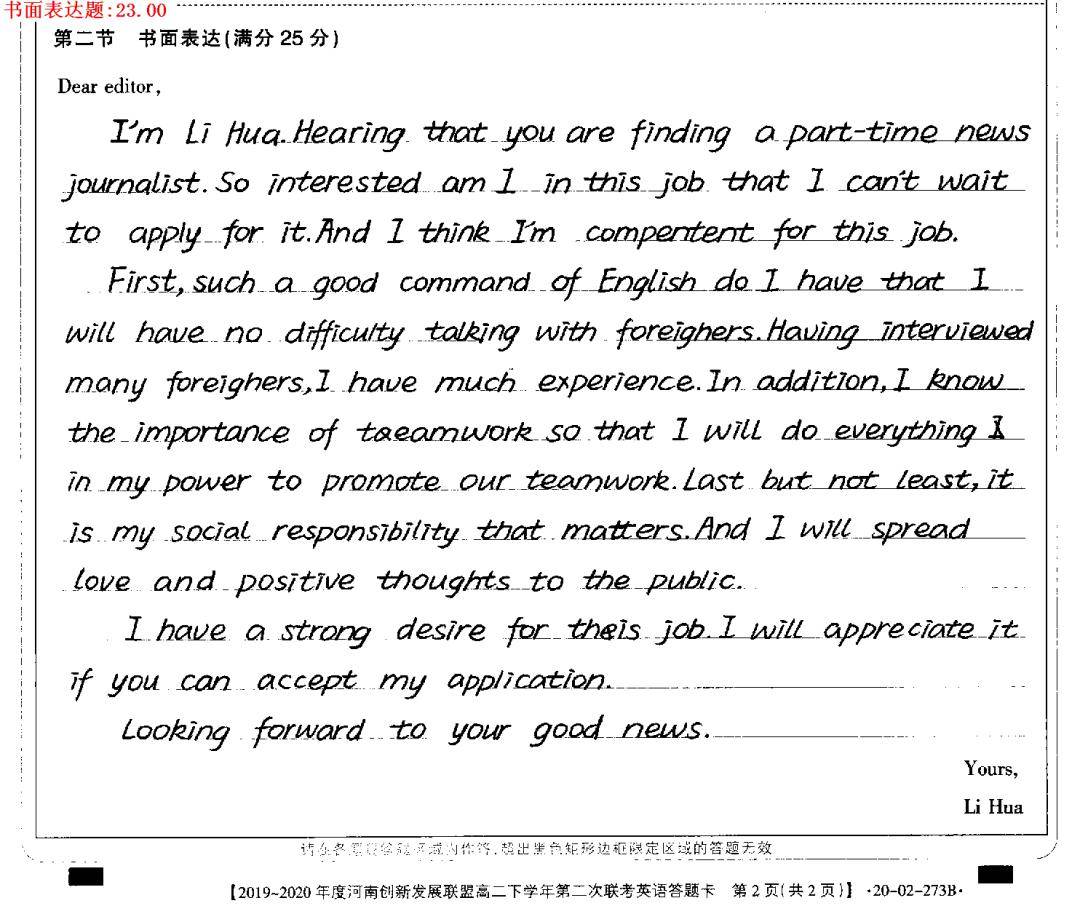 书面表达题:23.00
第二节 书面表达(满分 25 分)
Dear editor,
I'm Li Hua. Hearing that you are finding a part-time news
journalist. So interested am I in this job that I can't wait
to apply for it. And I think I'm compentent for this job.
First, such a good command of English do I have that I
will have no difficulty talking with foreighers. Having interviewed
many foreighers, I have much experience. In addition, I know
the importance of taeamwork so that I will do everything I
in my power to promote our teamwork. Last but not least, it
is my social responsibility that matters. And I will spread
love and positive thoughts to the public.
I have a strong desire for theis job. I will appreciate it
if you can accept my application.
Looking forward to your good news.
Yours,
Li Hua
请在各题目答题区域内作答,超出黑色矩形边框限定区域的答题无效
【2019~2020 年度河南创新发展联盟高二下学年第二次联考英语答题卡 第 2 页(共 2 页)】 ·20-02-273B·